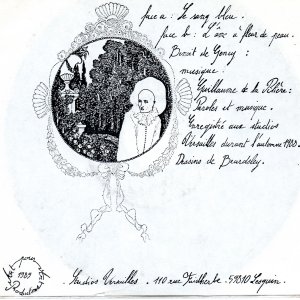 face a : Le sang bleu.
face b : L'âme à fleur de peau.
Benoit de Goncy :
musique.
Guillaume de la Pilière :
Paroles et musique.
Enregistré aux studios
Versailles durant l'automne 1988.
Dessins de Beardsley.
1989
Studios Versailles . 110 rue Faidherbe . 59810 Lesquin .